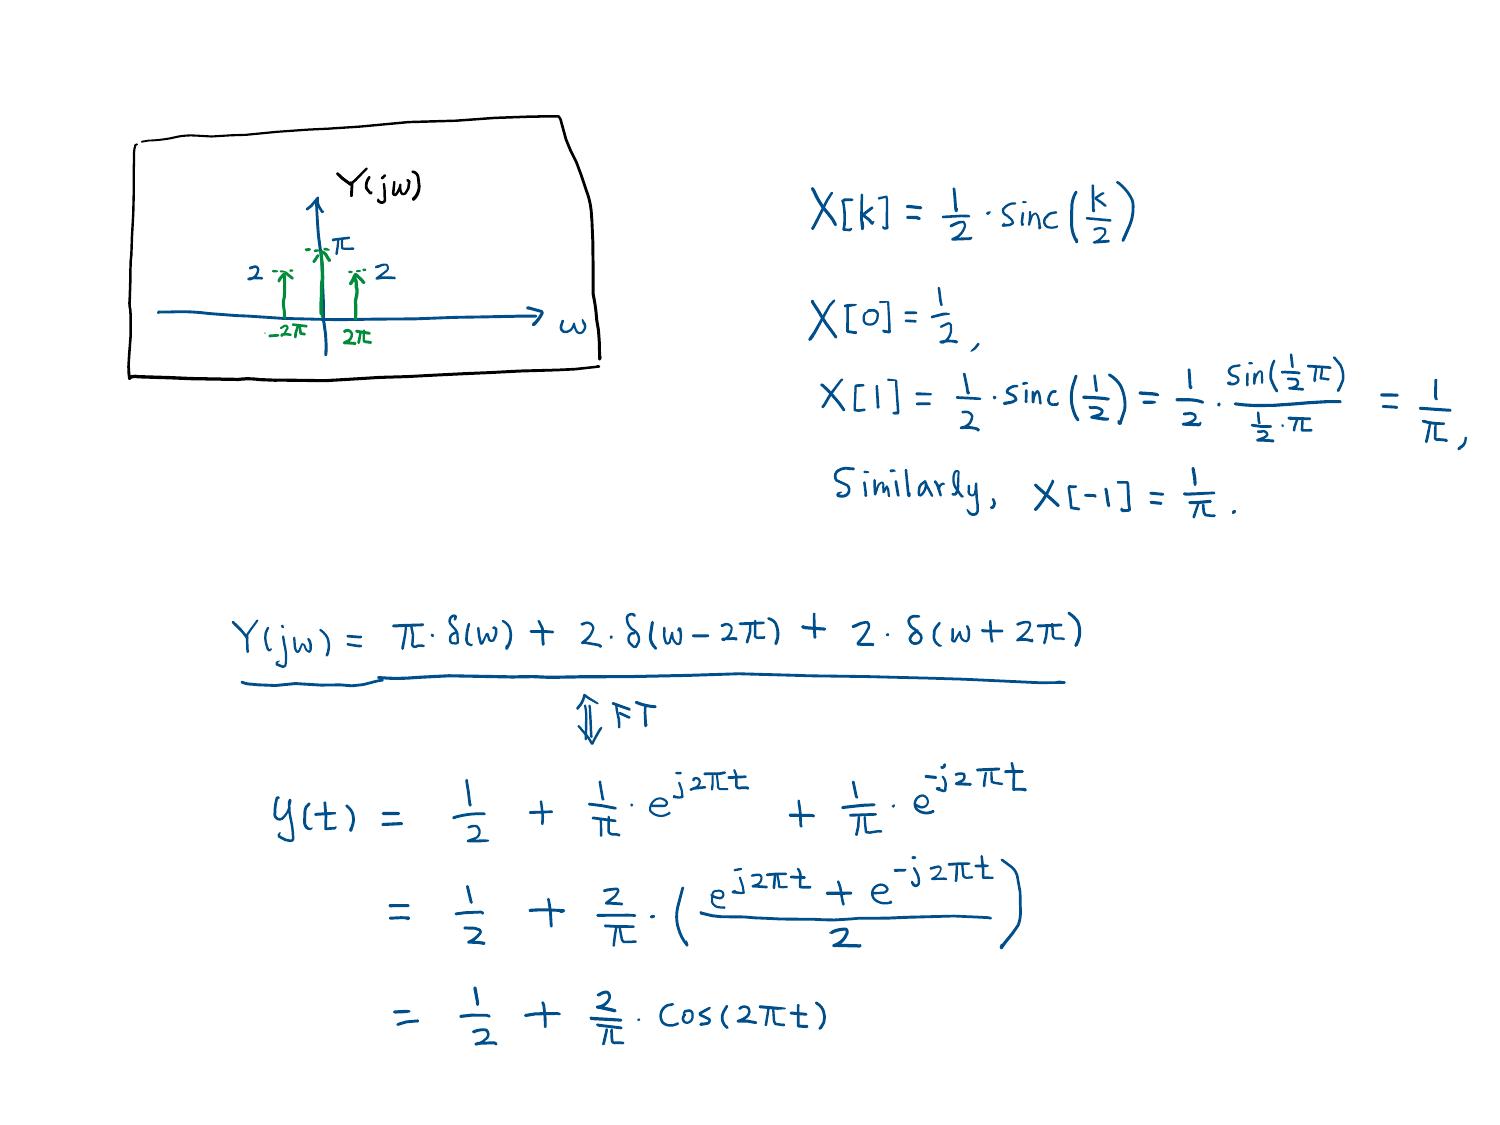 Y(jω)
π
2
2
-2π
2π
ω
X[k] = 1/2 · sinc(k/2)
X[0] = 1/2,
X[1] = 1/2 · sinc(1/2) = 1/2 · sin(1/2 π) / (1/2 · π) = 1/π,
Similarly, X[-1] = 1/π.
Y(jω) = π · δ(ω) + 2 · δ(ω - 2π) + 2 · δ(ω + 2π)
⇕ FT
y(t) = 1/2 + 1/π · e^(j2πt) + 1/π · e^(-j2πt)
= 1/2 + 2/π · ((e^(j2πt) + e^(-j2πt)) / 2)
= 1/2 + 2/π · cos(2πt)